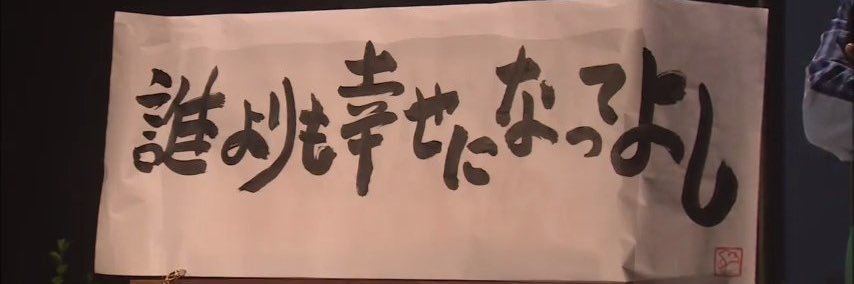 誰よりも幸せになってよし